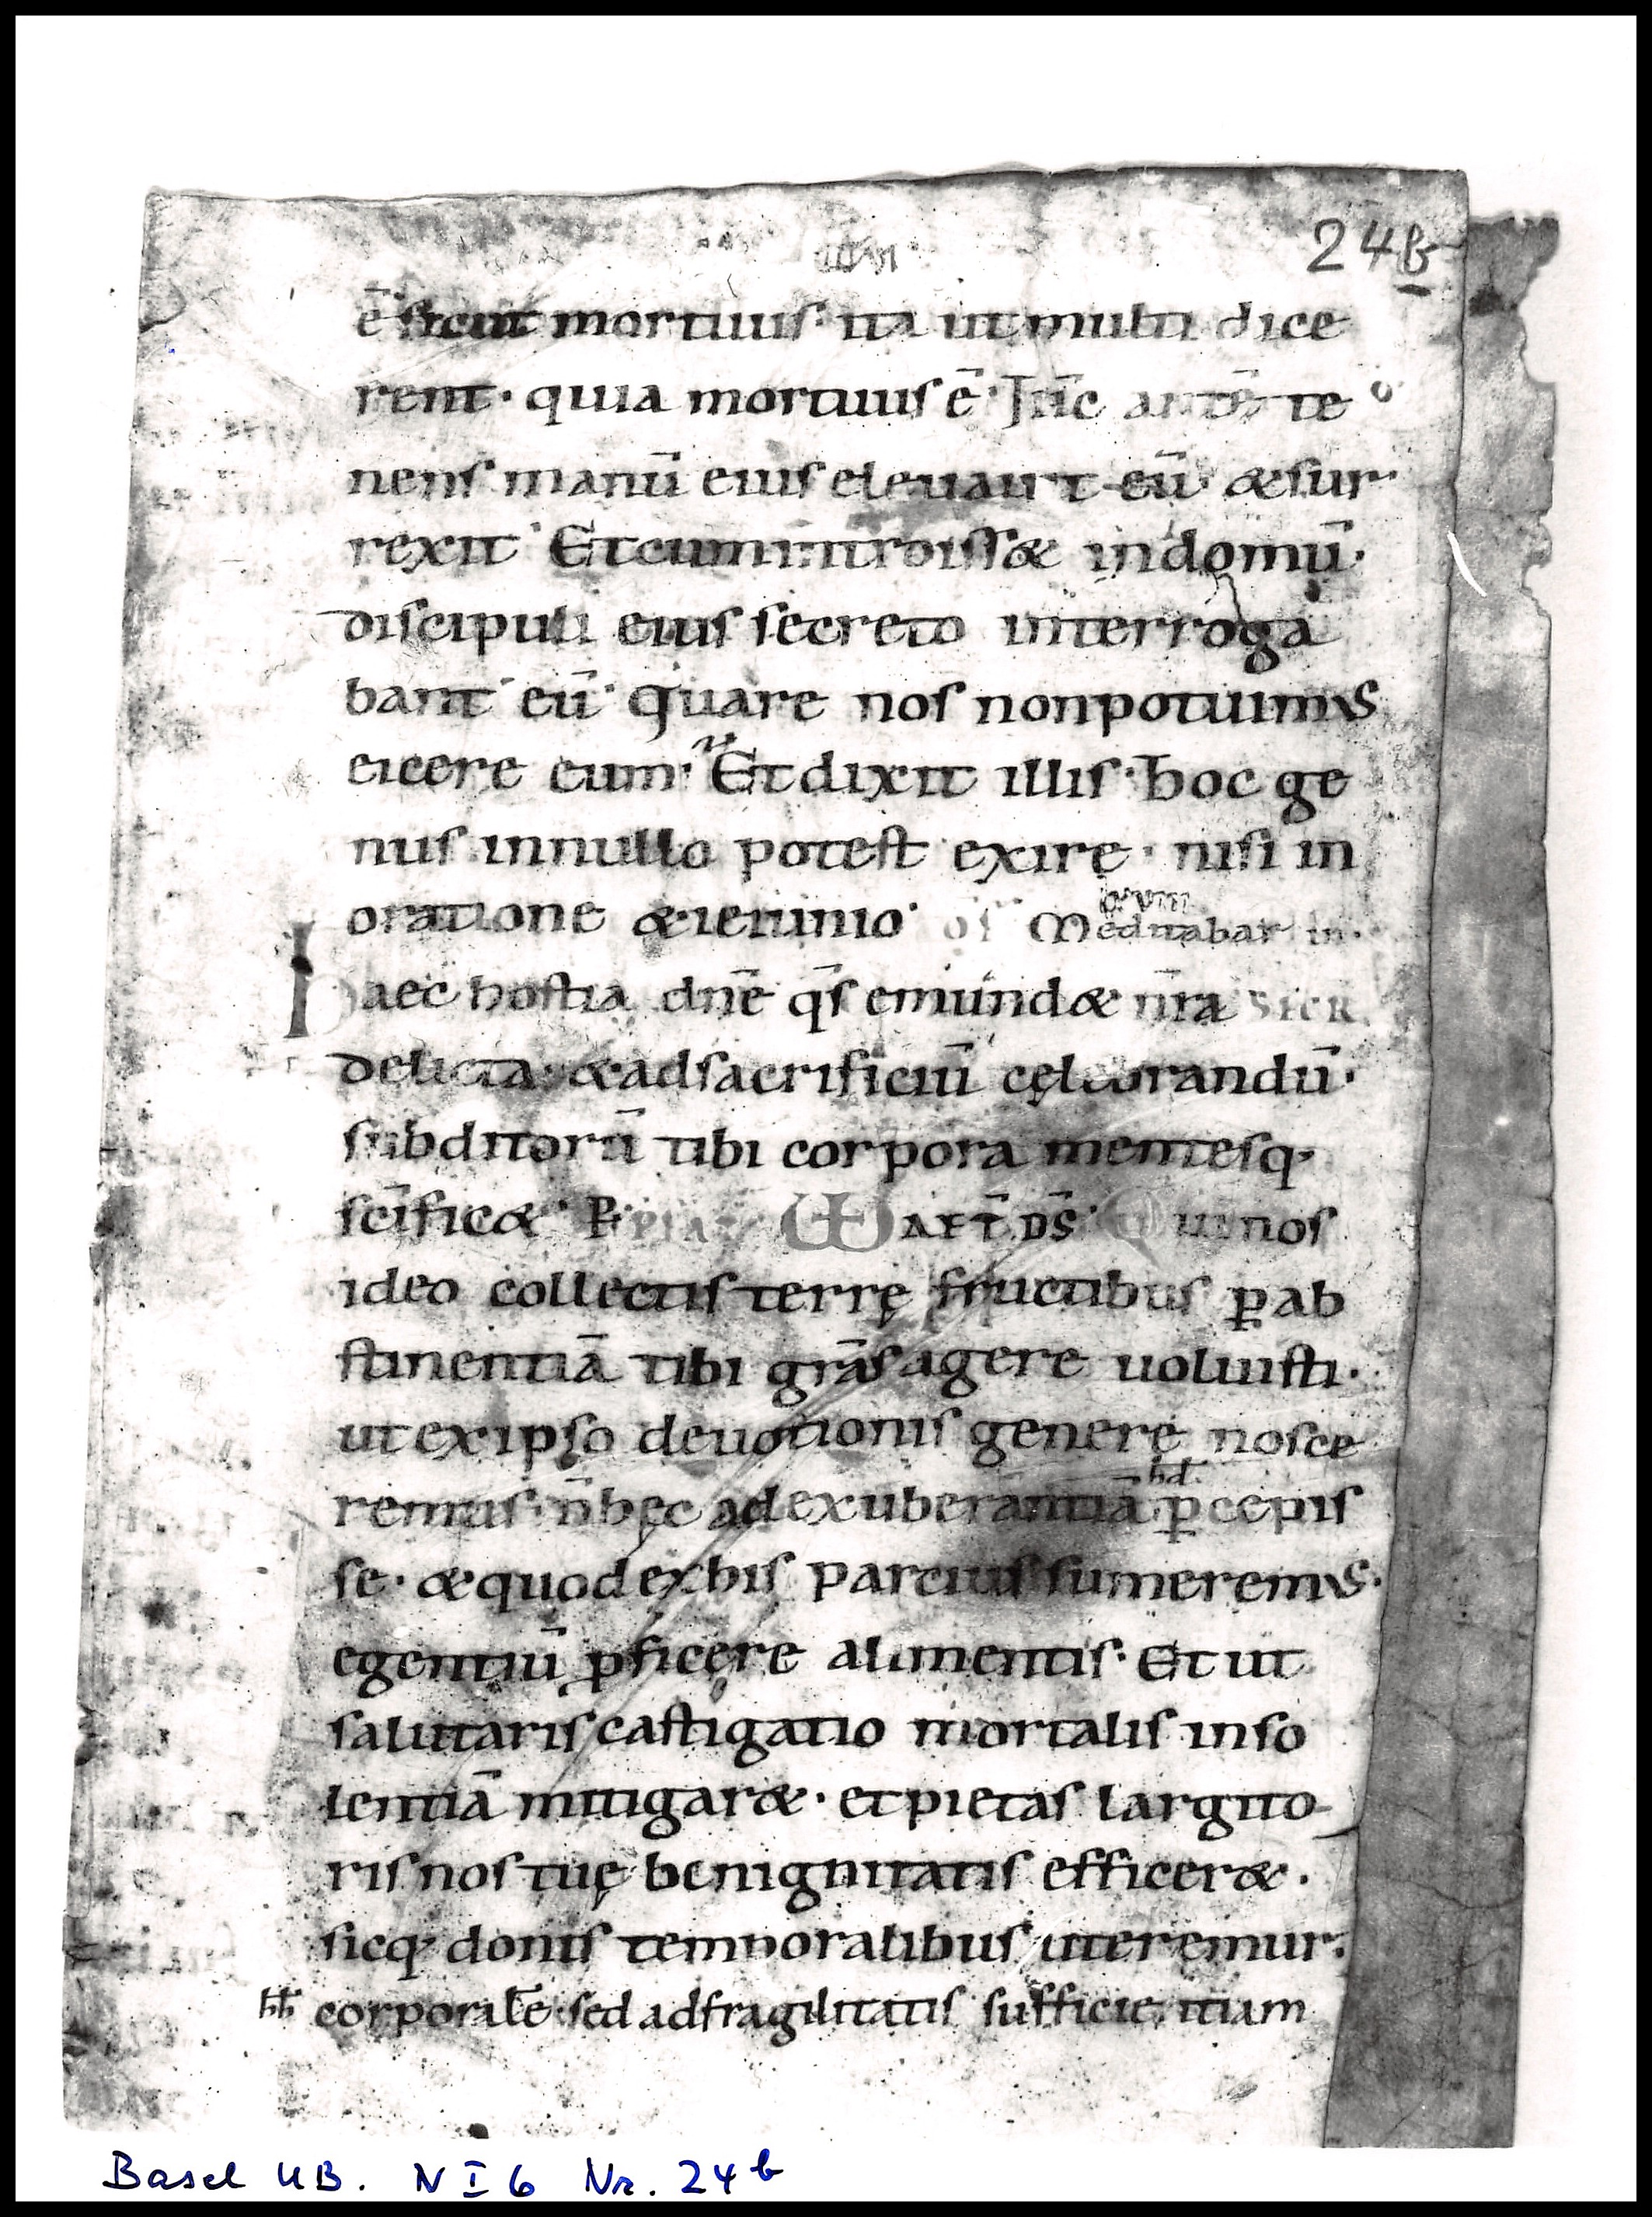 24b
ē sicut mortuus· ita ut multi dice
rent· quia mortuus ē· Ihc autē te
nens manū eius eleuauit eū· &sur
rexit· Et cum introiss& in domū·
discipuli eius secreto interroga
bant eū· Quare nos non potuimus
eicere eum· Et dixit illis· hoc ge
nus in nullo potest exire· nisi in
oratione & ieiunio· of Meditabar in·
Haec hostia dn̄e q̄s emund& n̄ra SECR
delicta· & ad sacrificiū cęlebrandū·
subditorū tibi corpora mentesq·
sc̄ific&· P· AET̄ D̄S· Qui nos
ideo collectis terrę fructibus ꝑ ab
stinentiā tibi grās agere uoluisti·
ut ex ipso deuotionis genere nosce
remus· n̄ hęc ad exuberantiā hd· ꝑcepis
se· & quod ex his parcius sumeremus·
egentiū ꝓficere alimentis· Et ut
salutaris castigatio mortalis inso
lentiā mitigar&· et pietas largito
ris nos tuę benignitatis efficer&·
sicq· donis temporalibus uteremur·
ht corporalē· sed ad fragilitatis sufficientiam
Basel UB. N I 6 Nr. 24b